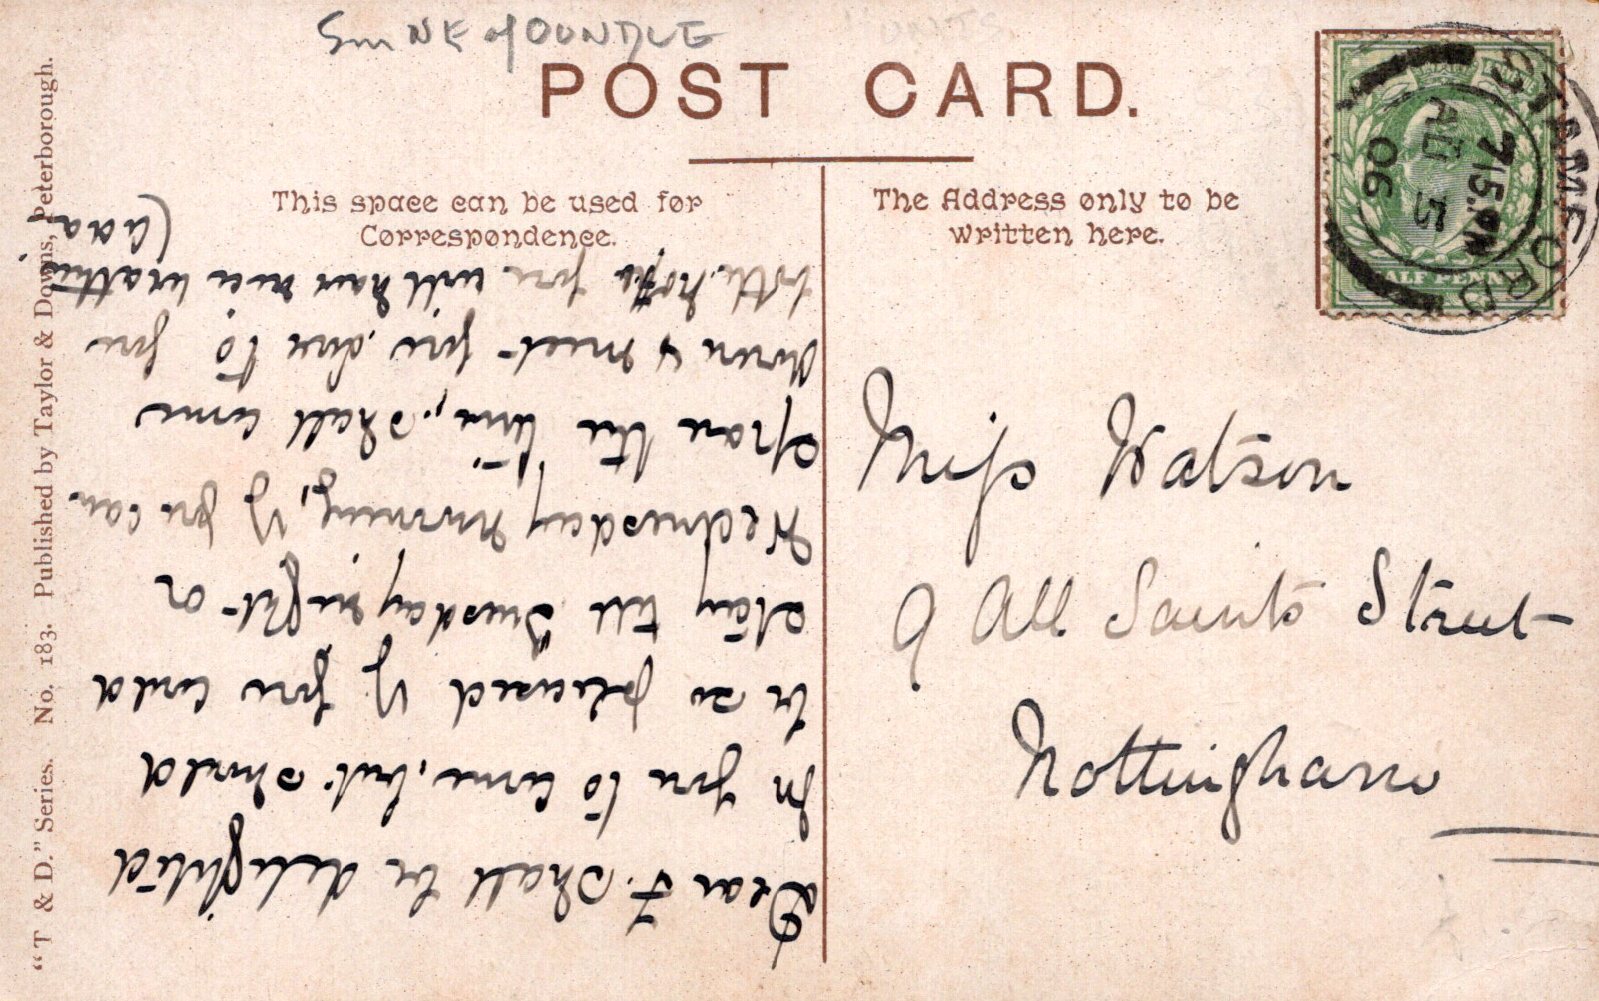 5m NE of OUNDLE
POST CARD.
This space can be used for
Correspondence.
The Address only to be
written here.
"T & D." Series. No. 183. Published by Taylor & Downs, Peterborough.
STAMFORD
7 15 PM
AU 5
06
HALF PENNY
Miss Watson
9 All Saints Street
Nottingham
Dear F. Shall be delighted
for you to come, but should
be so pleased if you could
stay till Tuesday night or
Wednesday morning, if you can
spare the time, shall come
down & meet you, love to you
both, hope you will have nice weather